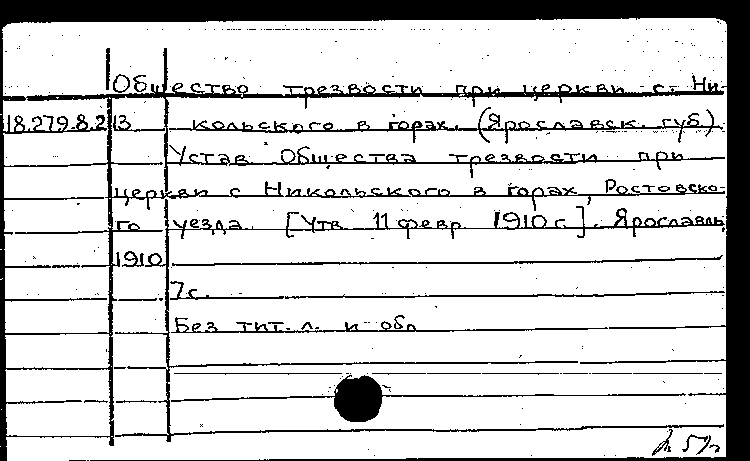 Общество трезвости при церкви с. Ни-
18.279.8.213 кольского в горах. (Ярославск. губ)
Устав Общества трезвости при
церкви с Никольского в горах, Ростовско-
го уезда. [Утв. 11 февр. 1910 г.]. Ярославль
1910
7с.
Без тит. л. и обл